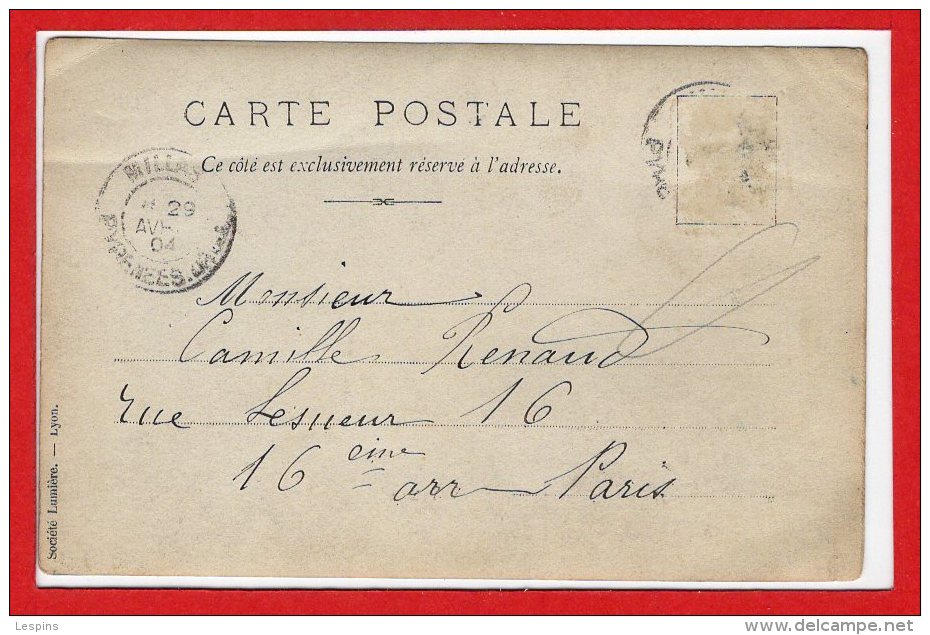 CARTE POSTALE
Ce côté est exclusivement réservé à l'adresse.
MILLAS
29
AVR.
04
Monsieur
Camille Renaud
rue Lesueur 16
16 eme arr Paris
Société Lumière. — Lyon.
Lespins
www.delcampe.net